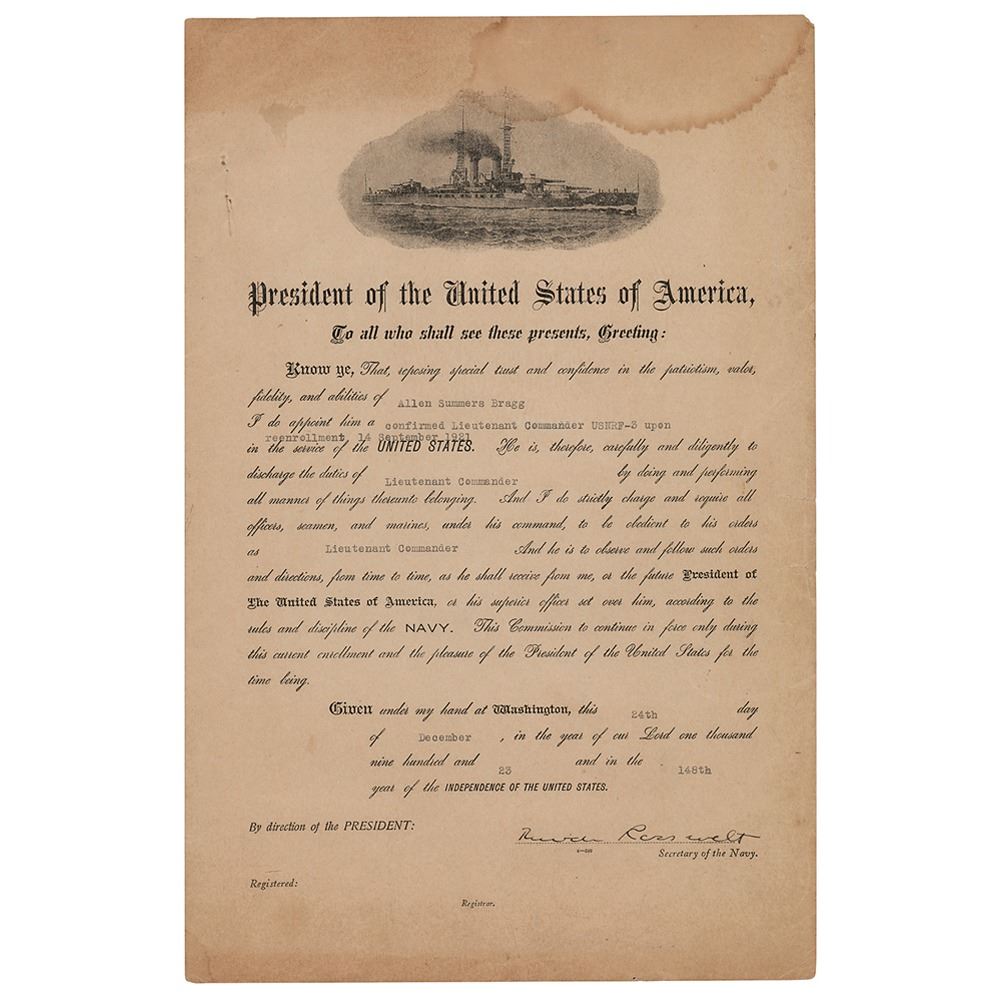 President of the United States of America,
To all who shall see these presents, Greeting:
Know ye, That, reposing special trust and confidence in the patriotism, valor,
fidelity, and abilities of Allen Summers Bragg
I do appoint him a confirmed Lieutenant Commander USNRF-3 upon
reenrollment, 14 September 1921
in the service of the UNITED STATES. He is, therefore, carefully and diligently to
discharge the duties of Lieutenant Commander by doing and performing
all manner of things thereunto belonging. And I do strictly charge and require all
officers, seamen, and marines, under his command, to be obedient to his orders
as Lieutenant Commander And he is to observe and follow such orders
and directions, from time to time, as he shall receive from me, or the future President of
The United States of America, or his superior officer set over him, according to the
rules and discipline of the NAVY. This Commission to continue in force only during
this current enrollment and the pleasure of the President of the United States for the
time being.
Given under my hand at Washington, this 24th day
of December, in the year of our Lord one thousand
nine hundred and 23 and in the 148th
year of the INDEPENDENCE OF THE UNITED STATES.
By direction of the PRESIDENT:
Roosevelt
Secretary of the Navy.
Registered:
Registrar.